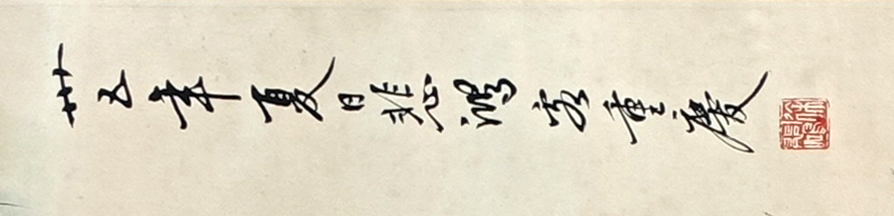 卅五年夏日悲鸿客重慶